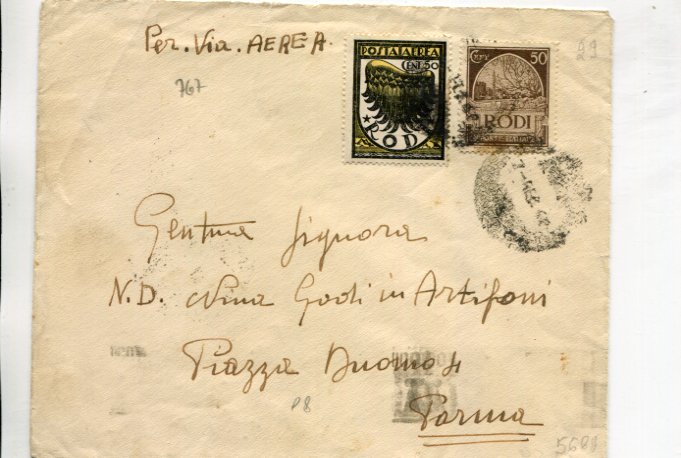 Per. Via. AEREA.
767
POSTA AEREA
CENT. 50
RODI
CENT 50
RODI
29
Gentma Signora
N.D. Nina Godi in Artifoni
Piazza Duomo 4
P8
Parma
5688